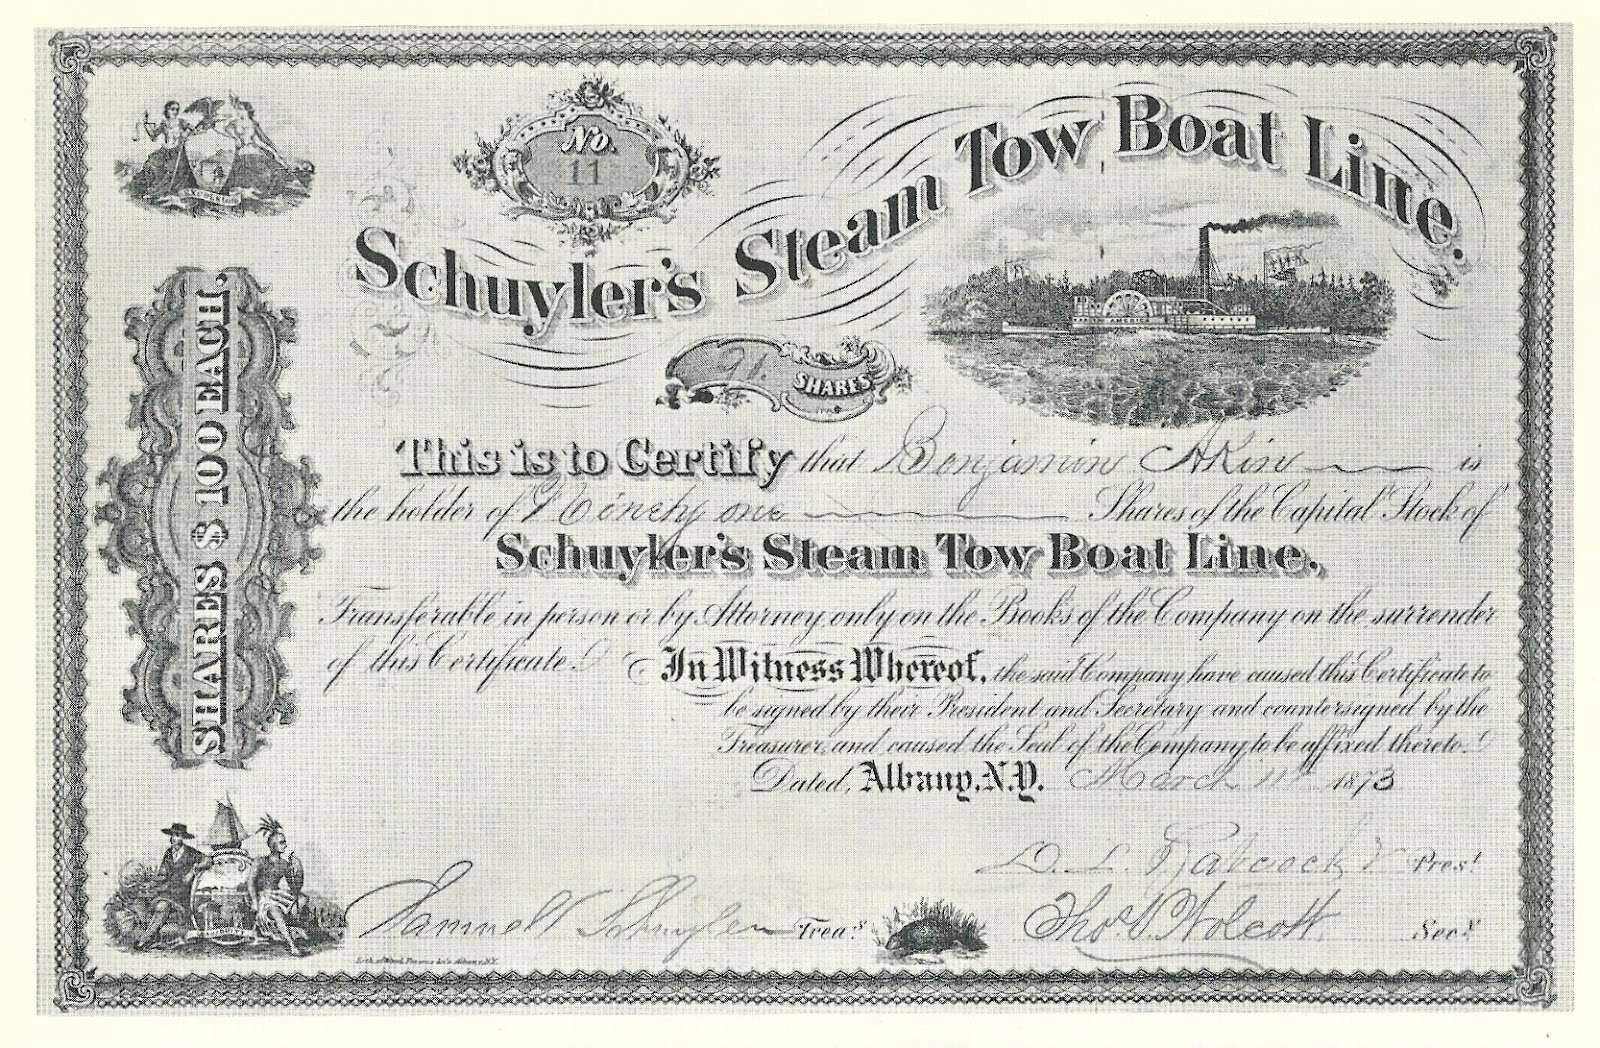 No.
11
Schuyler's Steam Tow Boat Line.
EXCELSIOR
AMERICA
91. SHARES
SHARES $ 100 EACH.
This is to Certify that Benjamin Akin is
the holder of Ninety one Shares of the Capital Stock of
Schuyler's Steam Tow Boat Line.
Transferable in person or by Attorney only on the Books of the Company on the surrender
of this Certificate. In Witness Whereof, the said Company have caused this Certificate to
be signed by their President and Secretary and countersigned by the
Treasurer, and caused the Seal of the Company to be affixed thereto.
Dated, Albany, N.Y. March 11th 1873
D. L. Babcock V Prest
Samuel Schuyler Treasr
Thos. V. Wolcott Secy
Albany, N.Y.